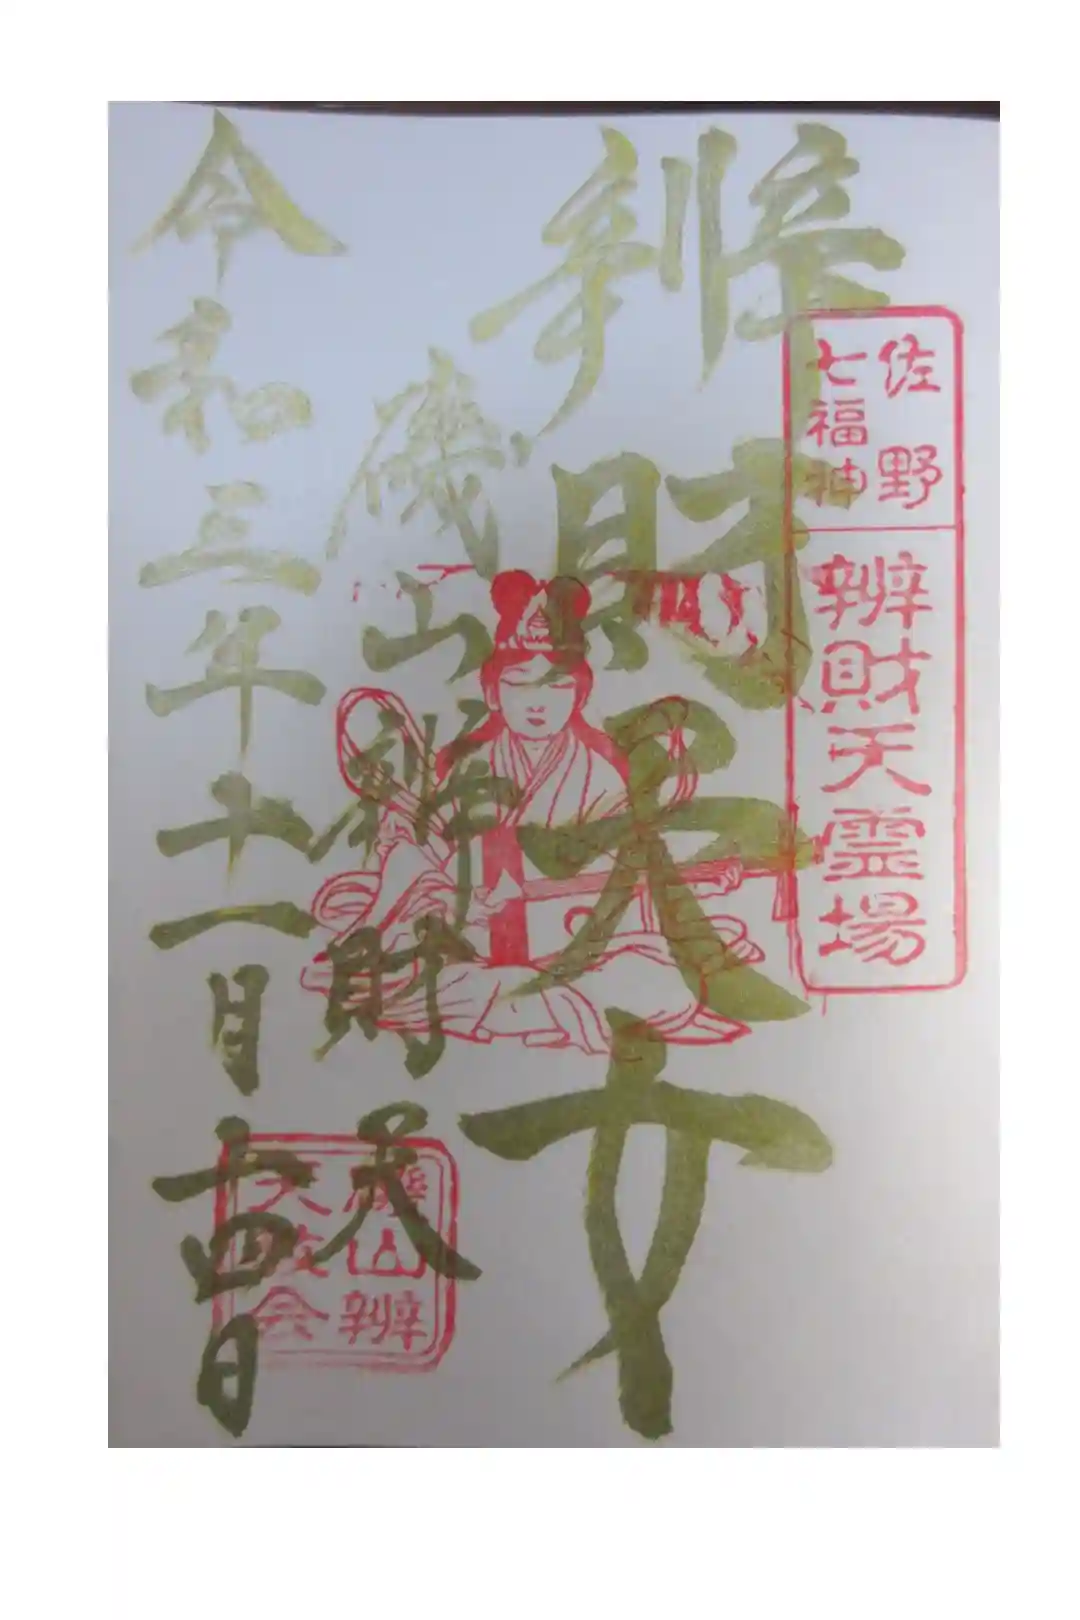 佐野
七福神
辨財天霊場
辨財天女
磯山辨財天
令和三年十一月十四日
磯山辨
天敬会